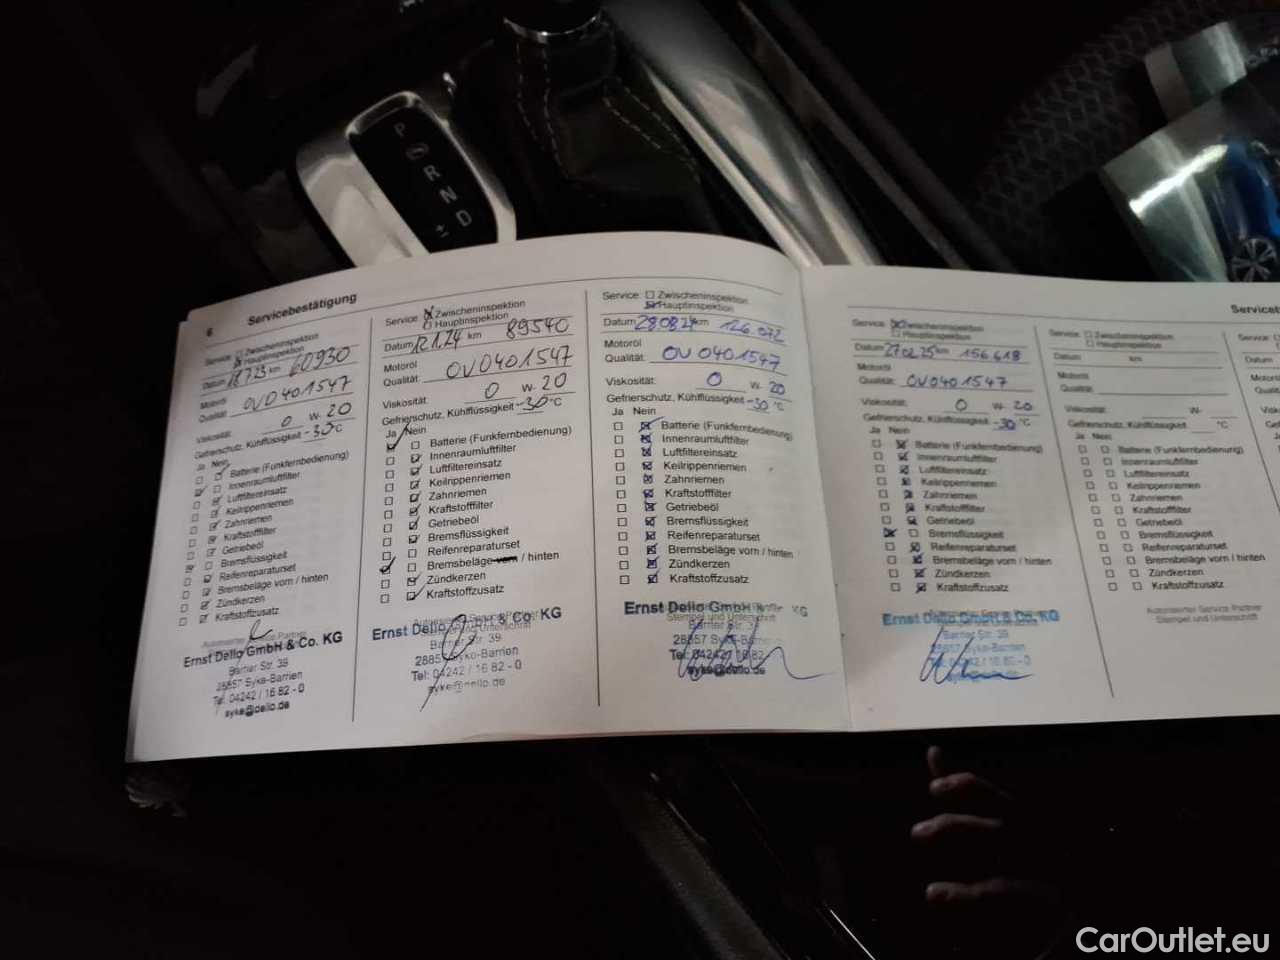 P
R
N
D
±
6 Servicebestätigung
Service: Zwischeninspektion
Hauptinspektion
Datum 12.7.23 km 60930
Motoröl
Qualität OV0401547
Viskosität: 0 W- 20
Gefrierschutz, Kühlflüssigkeit -35 °C
Ja Nein
Batterie (Funkfernbedienung)
Innenraumluftfilter
Luftfiltereinsatz
Keilrippenriemen
Zahnriemen
Kraftstofffilter
Getriebeöl
Bremsflüssigkeit
Reifenreparaturset
Bremsbeläge vorn / hinten
Zündkerzen
Kraftstoffzusatz
Autorisierter Service Partner
Ernst Dello GmbH & Co. KG
Barrier Str. 39
28857 Syke-Barrien
Tel. 04242 / 16 82 - 0
syke@dello.de
Service: Zwischeninspektion
Hauptinspektion
Datum 12.1.24 km 89540
Motoröl
Qualität: OV0401547
Viskosität: 0 W- 20
Gefrierschutz, Kühlflüssigkeit -30 °C
Ja Nein
Batterie (Funkfernbedienung)
Innenraumluftfilter
Luftfiltereinsatz
Keilrippenriemen
Zahnriemen
Kraftstofffilter
Getriebeöl
Bremsflüssigkeit
Reifenreparaturset
Bremsbeläge vorn / hinten
Zündkerzen
Kraftstoffzusatz
Ernst Dello GmbH & Co. KG
Barrier Str. 39
28857 Syke-Barrien
Tel: 04242 / 16 82 - 0
syke@dello.de
Service: Zwischeninspektion
Hauptinspektion
Datum 28.08.24 km 126.072
Motoröl
Qualität: OV0401547
Viskosität: 0 W- 20
Gefrierschutz, Kühlflüssigkeit -30 °C
Ja Nein
Batterie (Funkfernbedienung)
Innenraumluftfilter
Luftfiltereinsatz
Keilrippenriemen
Zahnriemen
Kraftstofffilter
Getriebeöl
Bremsflüssigkeit
Reifenreparaturset
Bremsbeläge vorn / hinten
Zündkerzen
Kraftstoffzusatz
Ernst Dello GmbH & KG
Stempel und Unterschrift
Barrier Str. 3
28857 Syke-Barrien
Tel: 04242 / 16 82
syke@dello.de
Service: Zwischeninspektion
Hauptinspektion
Datum 27.02.25 km 156.618
Motoröl
Qualität: OV0401547
Viskosität: 0 W- 20
Gefrierschutz, Kühlflüssigkeit -30 °C
Ja Nein
Batterie (Funkfernbedienung)
Innenraumluftfilter
Luftfiltereinsatz
Keilrippenriemen
Zahnriemen
Kraftstofffilter
Getriebeöl
Bremsflüssigkeit
Reifenreparaturset
Bremsbeläge vorn / hinten
Zündkerzen
Kraftstoffzusatz
Ernst Dello GmbH & Co. KG
Barrier Str. 39
28857 Syke-Barrien
Service: Zwischeninspektion
Hauptinspektion
Datum km
Motoröl
Qualität
Viskosität: W-
Gefrierschutz, Kühlflüssigkeit °C
Ja Nein
Batterie (Funkfernbedienung)
Innenraumluftfilter
Luftfiltereinsatz
Keilrippenriemen
Zahnriemen
Kraftstofffilter
Getriebeöl
Bremsflüssigkeit
Reifenreparaturset
Bremsbeläge vorn / hinten
Zündkerzen
Kraftstoffzusatz
Autorisierter Service Partner
Stempel und Unterschrift
CarOutlet.eu